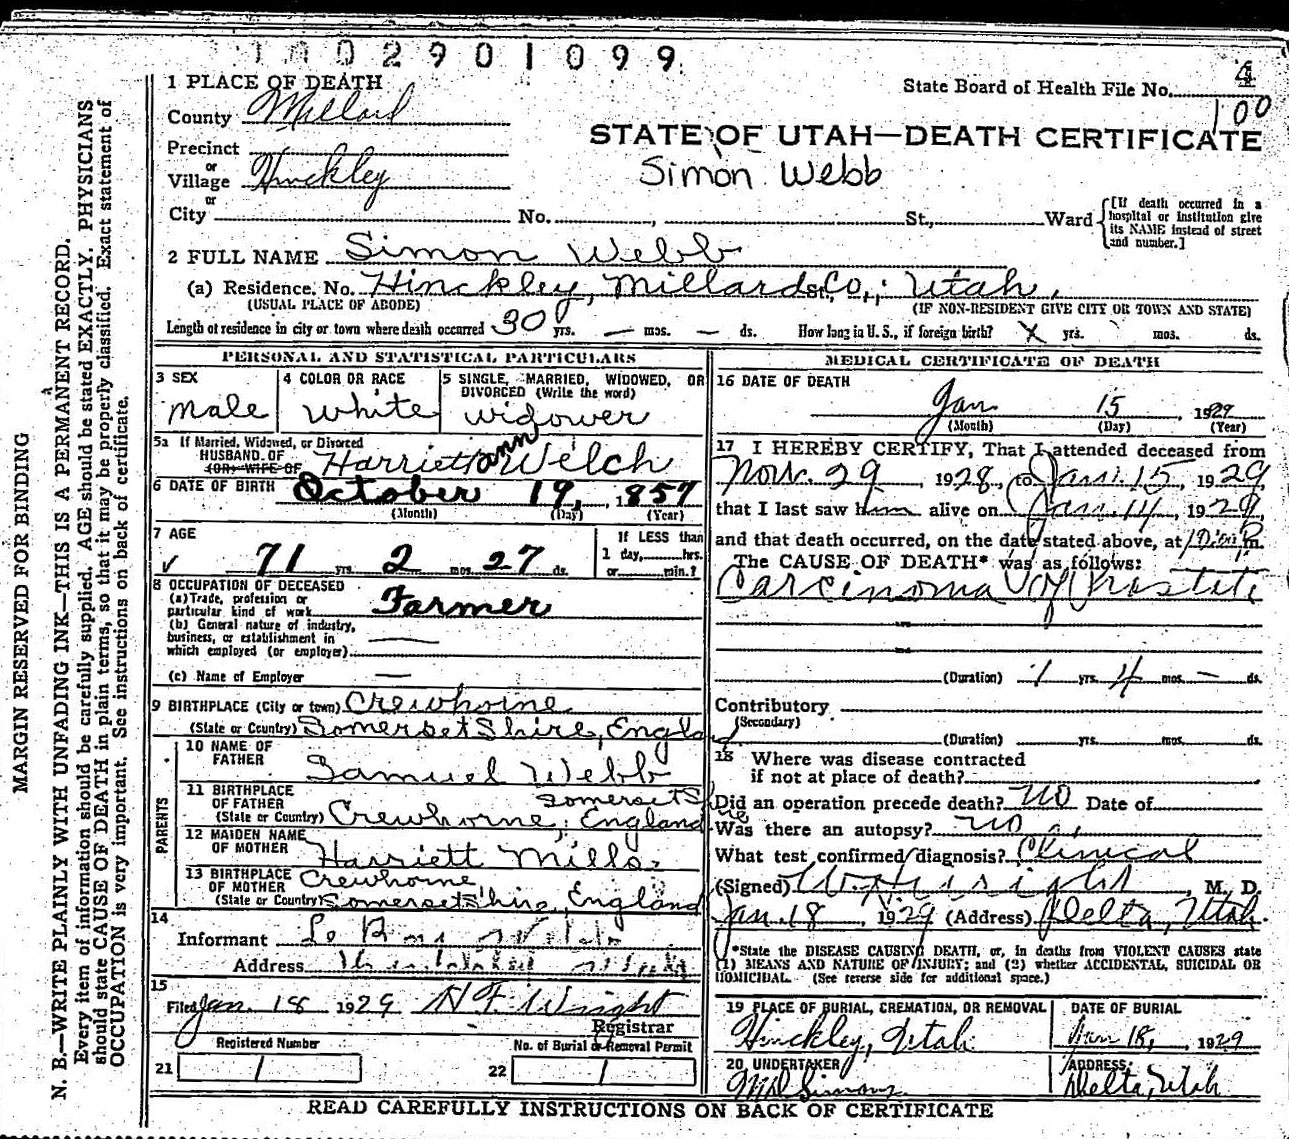 1002901099
1 PLACE OF DEATH
State Board of Health File No. 4
100
County Millard
STATE OF UTAH—DEATH CERTIFICATE
Precinct
or
Village Hinckley
Simon Webb
or
City No. , St., Ward
[If death occurred in a hospital or institution give its NAME instead of street and number.]
2 FULL NAME Simon Webb
(a) Residence. No. Hinckley, Millard St., Co., Utah.
(USUAL PLACE OF ABODE) (IF NON-RESIDENT GIVE CITY OR TOWN AND STATE)
Length of residence in city or town where death occurred 30 yrs. — mos. — ds. How long in U. S., if foreign birth? X yrs. mos. ds.
PERSONAL AND STATISTICAL PARTICULARS
3 SEX
male
4 COLOR OR RACE
White
5 SINGLE, MARRIED, WIDOWED, OR DIVORCED (Write the word)
widower
5a If Married, Widowed, or Divorced
HUSBAND OF
(OR) WIFE OF Harriett Ann Welch
6 DATE OF BIRTH October 19, 1857
(Month) (Day) (Year)
7 AGE
71 yrs. 2 mos. 27 ds.
If LESS than
1 day, hrs.
or min.?
8 OCCUPATION OF DECEASED
(a) Trade, profession or
particular kind of work Farmer
(b) General nature of industry,
business, or establishment in
which employed (or employer)
(c) Name of Employer —
9 BIRTHPLACE (City or town) Crewhorne
(State or Country) Somersetshire, England
PARENTS
10 NAME OF FATHER Samuel Webb
11 BIRTHPLACE OF FATHER
(State or Country) Crewhorne, Somersetshire England
12 MAIDEN NAME OF MOTHER Harriett Mills
13 BIRTHPLACE OF MOTHER Crewhorne,
(State or Country) Somersetshire, England
14
Informant
Address
15
Filed Jan. 18 1929 Wright
Registrar
Registered Number No. of Burial or Removal Permit
21 1 22 1
MEDICAL CERTIFICATE OF DEATH
16 DATE OF DEATH
Jan 15, 1929
(Month) (Day) (Year)
17 I HEREBY CERTIFY, That I attended deceased from
Nov. 29, 1928, to Jan. 15, 1929,
that I last saw him alive on Jan. 14, 1929,
and that death occurred, on the date stated above, at m.
The CAUSE OF DEATH* was as follows:
Carcinoma of Prostate
(Duration) 1 yrs. 4 mos. — ds.
Contributory
(Secondary)
(Duration) yrs. mos. ds.
18 Where was disease contracted
if not at place of death?
Did an operation precede death? no Date of
Was there an autopsy? no
What test confirmed diagnosis? Clinical
(Signed) , M. D.
Jan. 18, 1929 (Address) Delta, Utah.
*State the DISEASE CAUSING DEATH, or, in deaths from VIOLENT CAUSES state
(1) MEANS AND NATURE OF INJURY; and (2) whether ACCIDENTAL, SUICIDAL OR
HOMICIDAL. (See reverse side for additional space.)
19 PLACE OF BURIAL, CREMATION, OR REMOVAL
Hinckley, Utah
DATE OF BURIAL
Jan 18, 1929
20 UNDERTAKER
ADDRESS:
Delta, Utah
READ CAREFULLY INSTRUCTIONS ON BACK OF CERTIFICATE
MARGIN RESERVED FOR BINDING
N. B.—WRITE PLAINLY WITH UNFADING INK—THIS IS A PERMANENT RECORD.
Every item of information should be carefully supplied. AGE should be stated EXACTLY. PHYSICIANS
should state CAUSE OF DEATH in plain terms, so that it may be properly classified. Exact statement of
OCCUPATION is very important. See instructions on back of certificate.